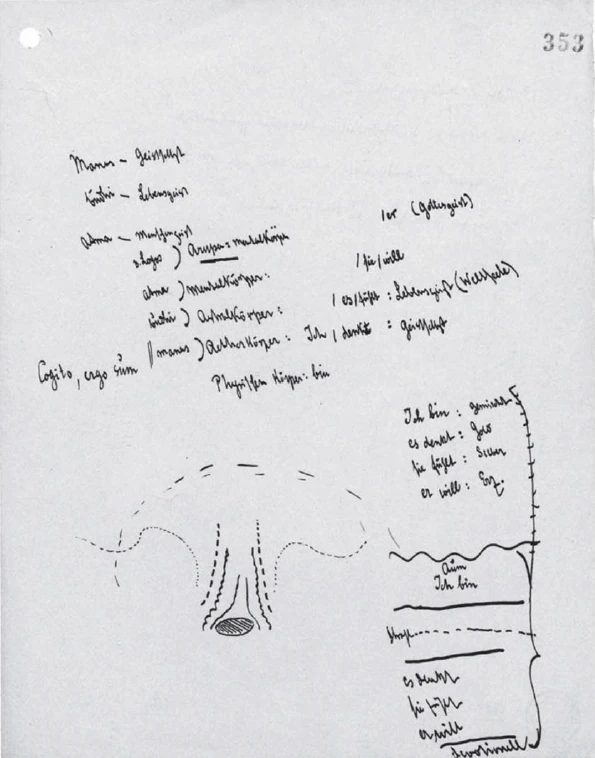 353
Manas – Geistselbst
Buddhi – Lebensgeist
Atma – Menschengeist
/ er (Gottesgeist)
Logos ) Arupa = mentalkörper
/ sie / will
atma ) Mentalkörper:
/ es / fühlt : Lebensgeist (Weltseele)
Buddhi ) Astralkörper :
/ manas ) Aetherkörper : Ich / denkt : Geistselbst
Cogito, ergo sum
Physischen Körper: bin
Ich bin : gemischt
es denkt : Gold
sie fühlt : Silber
er will : Erz.
Aum
Ich bin
es denkt
sie fühlt
er will
Devotionell